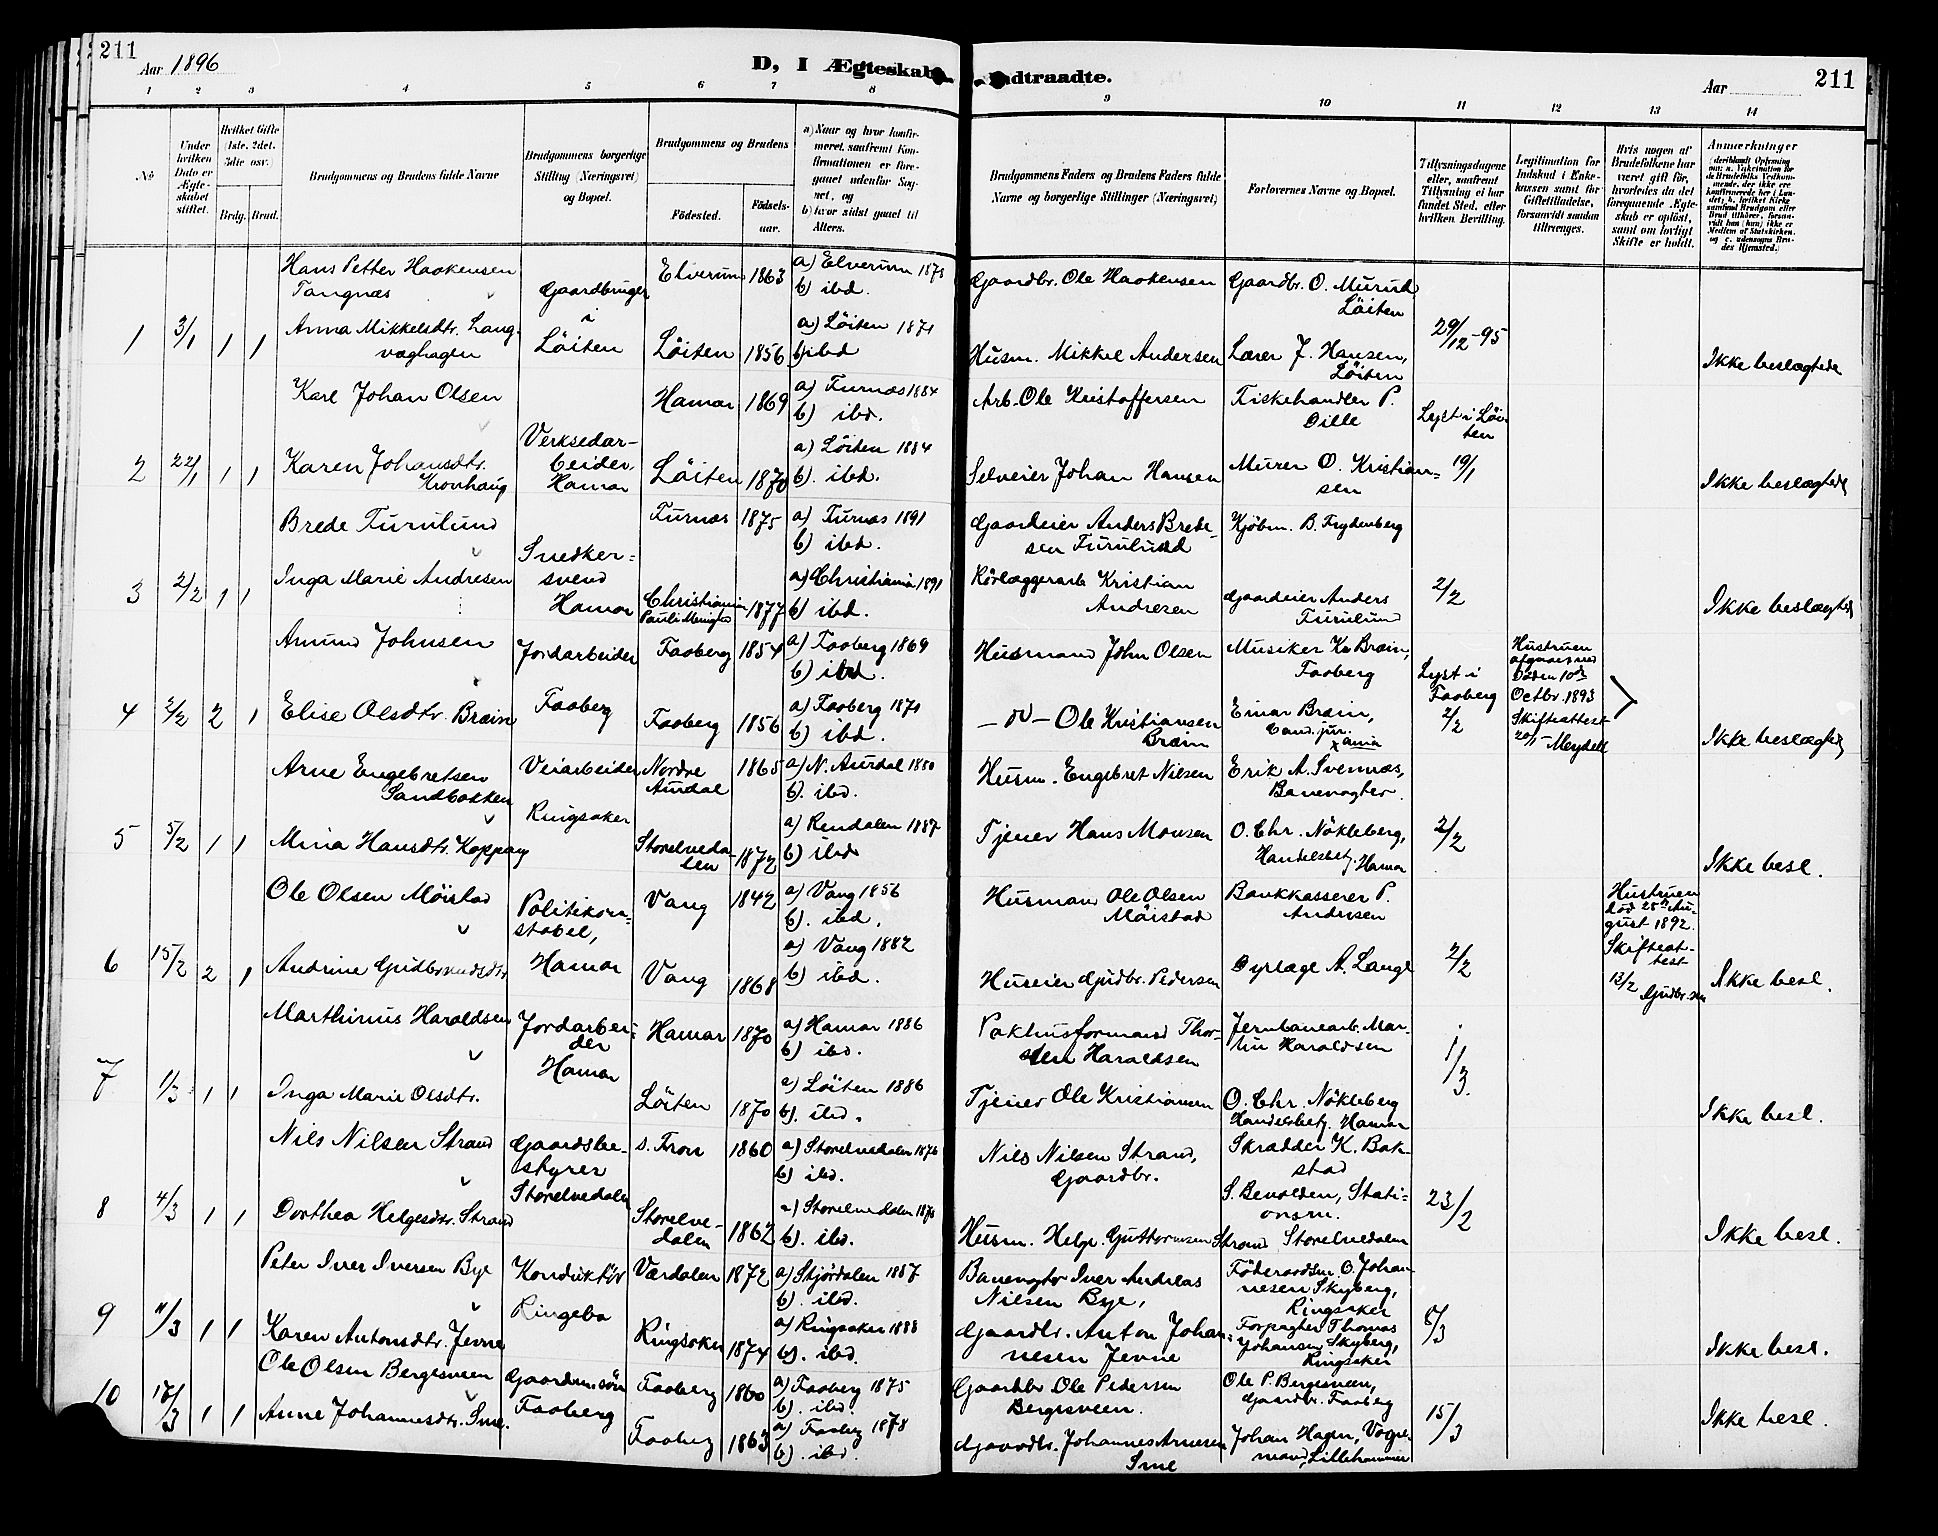 211
Aar 1896
D, I Ægteskab
Indtraadte.
Aar
211
1 2 3 4 5 6 7 8 9 10 11 12 13 14
No
Under hvilken Dato er Ægteskabet stiftet.
Hvilket Gifte (1ste, 2det, 3die osv.)
Brdg. Brud.
Brudgommens og Brudens fulde Navne
Brudgommens borgerlige Stilling (Næringsvei) og Bopæl.
Brudgommens og Brudens
Födested.
Födselsaar.
a) Naar og hvor konfirmeret, saafremt Konfirmationen er foregaaet udenfor Sognet, og
b) hvor sidst gaaet til Alters.
Brudgommens Faders og Brudens Faders fulde Navne og borgerlige Stillinger (Næringsvei)
Forlovernes Navne og Bopæl.
Tillysningsdagene eller, saafremt Tillysning ei har fundet Sted, efter hvilken Bevilling.
Legitimation for Indskud i Enkekassen samt for Giftetilladelse, forsaavidt saadan tiltrænges.
Hvis nogen af Brudefolkene har været gift för, hvorledes da det foregaaende Ægteskab er oplöst, samt om lovligt Skifte er holdt.
Anmærkninger
1 3/1 1 1
Hans Petter Haakensen Tangnæs
Gaardbruger i Löiten
Elverum 1863
a) Elverum 1878
b) ibd.
Gaardbr. Ole Haakensen
Gaardbr. O. Murud Löiten
29/12-95
Anna Mikkelsdtr. Langvæghagen
Löiten 1856
a) Löiten 1871
b) ibd
Husm. Mikkel Andersen
Lærer J. Hansen, Löiten
Ikke beslægtede
2 22/1 1 1
Karl Johan Olsen
Verksedarbeider Hamar
Hamar 1869
a) Furnæs 1884
b) ibd.
Arb. Ole Kristoffersen
Fiskehandler P. Dille
Lyst i Löiten 19/1
Karen Johansdtr. Kronhaug
Löiten 1870
a) Löiten 1884
b). ibd.
Selveier Johan Hansen
Murer O. Kristiansen
Ikke beslægtede
3 2/2 1 1
Brede Furulund
Snedkersvend Hamar
Furnæs 1875
a) Furnæs 1891
b) ibd.
Gaardeier Anders Bredesen Furulund
Kjöbm. B. Frydenberg
2/2
Inga Marie Andresen
Christiania Pauli Menighed 1877
a) Christiania 1891
b) ibd.
Rörlæggerarb Kristian Andresen
Gaardeier Anders Furulund
Ikke beslægtede
4 2/2 2 1
Amund Johnsen
Jordarbeider Faaberg
Faaberg 1854
a) Faaberg 1869
b) ibd.
Husmand John Olsen
Musiker K. Bræin, Faaberg
Lyst i Faaberg 2/2
Hustruen afgaaet ved Döden 10de Octbr. 1893 Skifteattest 20/1 Meydell
Elise Olsdtr. Bræin
Faaberg 1856
a) Faaberg 1871
b) ibd.
— do — Ole Kristiansen Bræin
Einar Bræin, Cand. jur. Xania
Ikke beslægtede
5 5/2 1 1
Arne Engebretsen Sandbakken
Veiarbeider Ringsaker
Nordre Aurdal 1865
a) N. Aurdal 1880
b). ibd.
Husm. Engebret Nilsen
Erik A. Svennæs, Banevogter.
2/2
Mina Hansdtr. Koppang
Storelvedalen 1872
a) Rendalen 1887
b) ibd
Tjener Hans Monsen
O. Chr. Nökleberg, Handelsbetj. Hamar
Ikke besl.
6 15/2 2 1
Ole Olsen Möistad
Politikonstabel, Hamar
Vang 1842
a) Vang 1856
b). ibd.
Husman Ole Olsen Möistad
Bankkasserer P. Andresen
2/2
Hustruen död 25de August 1892. Skifteattest 13/2 Gudbr.sen
Andrine Gudbrandsdtr.
Vang 1868
a) Vang 1882
b) ibd.
Huseier Gudbr. Pedersen
Dyrlæge A. Lange
Ikke besl.
7 1/3 1 1
Marthinus Haraldsen
Jordarbeider Hamar
Hamar 1870
a) Hamar 1886
b) ibd.
Pakhusformand Thorsten Haraldsen
Jernbanearb. Martin Haraldsen
1/3.
Inga Marie Olsdtr.
Löiten 1870
a) Löiten 1886
b). ibd.
Tjener Ole Kristiansen
O. Chr. Nökleberg Handelsbetj. Hamar
Ikke besl.
8 4/3 1 1
Nils Nilsen Strand
Gaardsbestyrer Storelvedalen
S. Fron 1860
a) Storelvedalen 1876
b) ibd.
Nils Nilsen Strand, Gaardbr.
Skrædder K. Bakstad
23/2
Dorthea Helgesdtr. Strand
Storelvedalen 1862
a) Storelvedalen 1876
b). ibd.
Husm. Helge Guttormsen Strand
S. Bevolden, Stationsm. Storelvedalen
Ikke besl.
9 11/3 1 1
Peter Iver Iversen Bye
Konduktör Ringebo
Værdalen 1872
a) Stjördalen 1887
b). ibd.
Banevogter Iver Andreas Nilsen Bye,
Föderaadsm. O. Johannesen Skyberg, Ringsaker
8/3
Karen Antonsdtr. Jevne
Ringsaker 1874
a) Ringsaker 1888
b). ibd.
Gaardbr. Anton Johannesen Jevne
Forpagter Thomas Johansen Skyberg, Ringsaker
Ikke besl.
10 17/3 1 1
Ole Olsen Bergesveen
Gaardmansön Faaberg
Faaberg 1860
a) Faaberg 1875
b). ibd.
Gaardbr Ole Pedersen Bergesveen.
Ole P. Bergesveen, Gaardbr. Faaberg
15/3
Anne Johannesdtr. Sme.
Faaberg 1863
a) Faaberg 1878
b). ibd.
Gaardbr. Johannes Arnesen Sme
Johan Hagen, Vognmand, Lillehammer
Ikke besl.